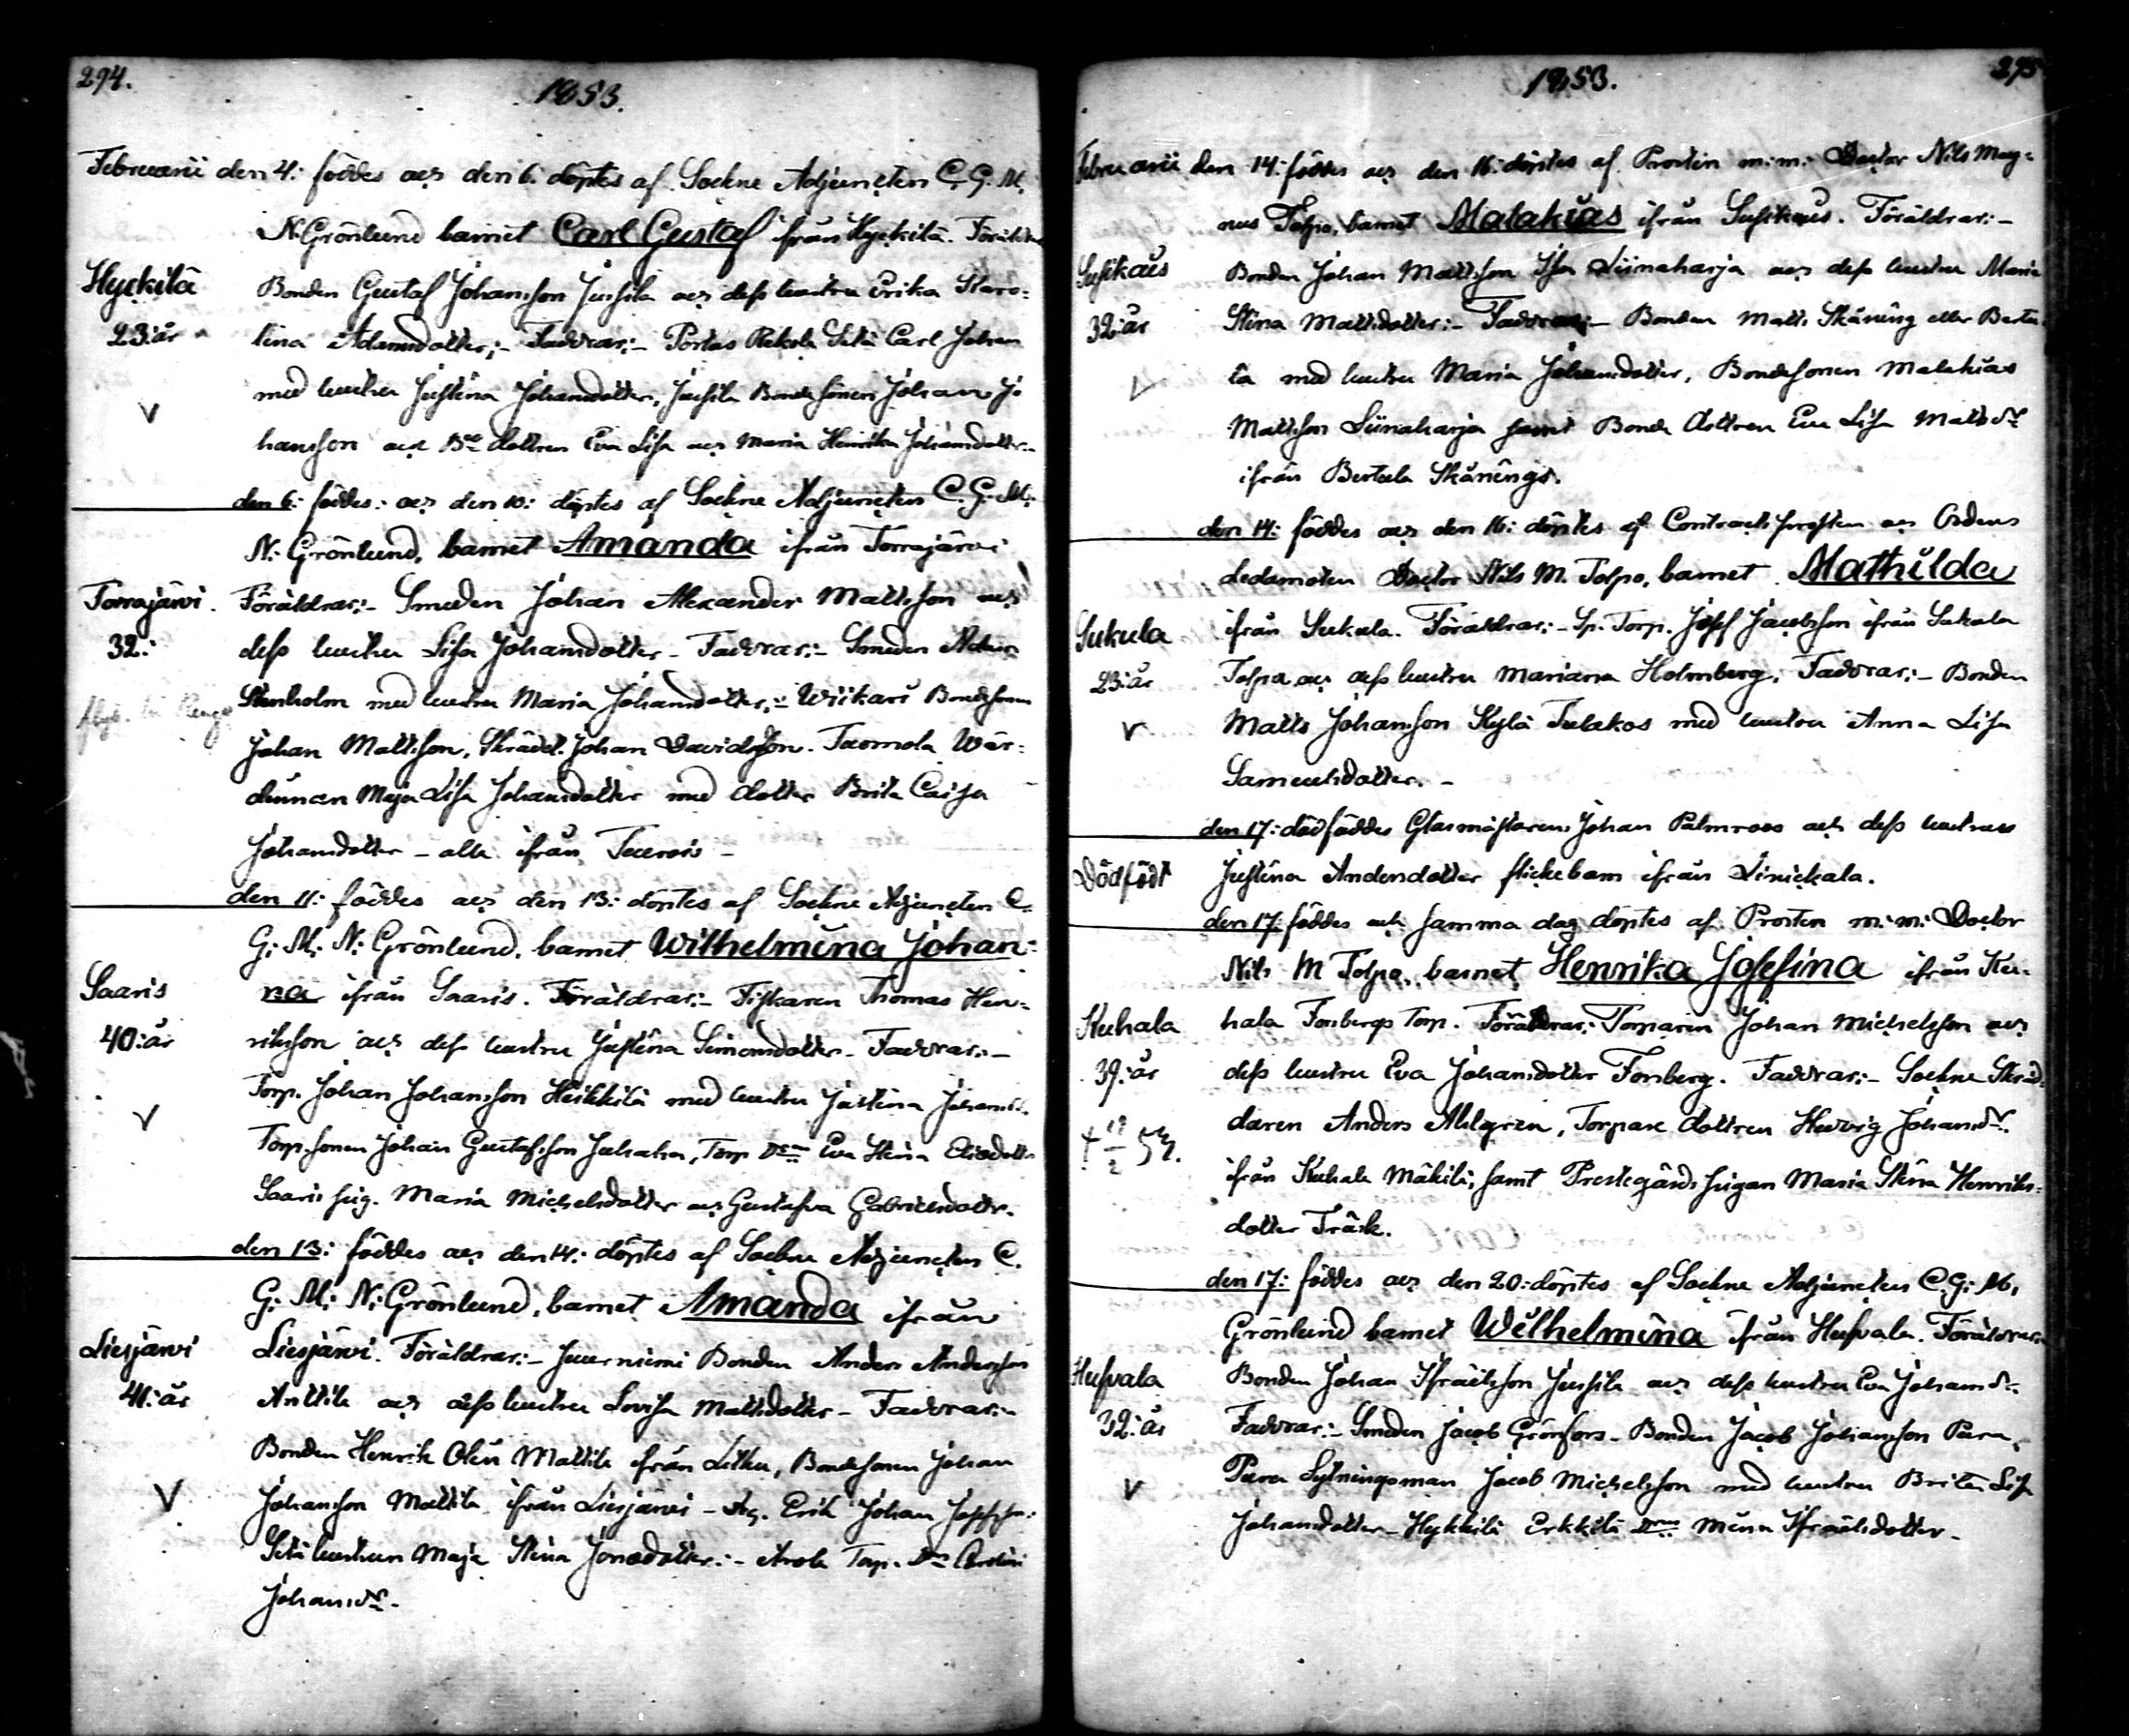 294.
1853.
Februarii den 4: föddes och den 6: döptes af Sockne Adjuncten C. G. M.
N. Grönlund barnet Carl Gustaf ifrån Hyckilä. Föräldrar
Hyckilä
Bonden Gustaf Johansson Jussila och dess hustru Erika Karo=
23: år
lina Adamsdotter;- Faddrar:- Portas Rekola Carl Johan
med hustru Justina Johansdotter, Jussila Bonde sönen Johan Jo
V
hansson och dottren Eva Lisa och Maria Henrika Johansdotter.
den 6: föddes: och den 10: döptes af Sockne Adjuncten C. G. M:
N: Grönlund, barnet Amanda ifrån Torrajärvi
Torrajärvi.
Föräldrar:- Smeden Johan Alexander Mattsson och
32:
dess hustru Lisa Johansdotter - Faddrar:- Smeden Adam
Stenholm med hustru Maria Johansdotter;- Wiikari Bondesonen
Johan Mattsson, Skrädd. Johan Davidsson. Tuomola Wär=
dinnan Maja Lisa Johansdotter med dotter Brita Caisa
Johansdotter - alla ifrån
den 11: föddes och den 13: döptes af Sockne Adjuncten C.
G. M. N: Grönlund. barnet Wilhelmina Johan=
Saaris
na ifrån Saaris. Föräldrar:- Fiskaren Thomas Hen=
40: år
riksson och dess hustru Justina Simonsdotter - Faddrar:-
Torp. Johan Johansson Heikkilä med hustru Justina Johansd.
V
Torp. sonen Johan Gustafsson Torp Eva Stina
Saaris pig. Maria Michelsdotter och Gustafva Gabrielsdotter.
den 13: föddes och den 14: döptes af Sockne Adjuncten C.
G: M: N: Grönlund, barnet Amanda ifrån
Liesjärvi
Liesjärvi. Föräldrar:- Juurniemi Bonden Anders Andersson
41: år
Anttila och dess hustru Lovisa Mattsdotter - Faddrar:-
Bonden Henrik Olin Mattila ifrån Letku, Bondesonen Johan
V
Johansson Mattila ifrån Liesjärvi - Erik Johan
hustrun Maja Stina Jonasdotter:- Torp.
Johansdr.-
275
1853.
Februarii den 14: föddes och den 16: döptes af Prosten m: m: Doctor Nils Mag=
nus Tolpo, barnet Malakias ifrån Susikas. Föräldrar:-
Susikas
Bonden Johan Mattsson Iso Liinaharja och dess hustru Maria
32: år
Stina Mattsdotter:- Faddrar:- Bonden Matts Skåning eller Bertu
V
la med hustru Maria Johansdotter, Bondesonen Malakias
Mattsson Liinaharja samt Bonde dottren Eva Lisa Mattsdr
ifrån Bertula Skånings.
den 14: föddes och den 16: döptes af Contracts prosten och Ordens
Ledamoten Doctor Nils M. Tolpo, barnet Mathilda
Sukula
ifrån Sukula. Föräldrar:- Sp. Torp. Josef Jacobsson ifrån Sukula
23: år
Tolpa och dess hustru Mariana Holmberg, Faddrar:- Bonden
V
Matts Johansson Kylä Tulakos med hustru Anna Lisa
Samuelsdotter.-
den 17: dödföddes Glasmästaren Johan Palmroos och dess hustrus
Dödfödt
Justina Andersdotter flickebarn ifrån Linickala.
den 17: föddes och samma dag döptes af Prosten m: m: Doctor
Nils M Tolpo, barnet Henrika Josefina ifrån Ku=
Kuhala
hala Forsbergs Torp. Föräldrar: Torparen Johan Michelsson och
39: år
dess hustru Eva Johansdotter Forsberg. Faddrar:- Sockne Skräd=
daren Anders Ahlgren, Torpare dottren Hedvig Johansdr.
ifrån Kuhala Mäkilä, samt Prestegårds pigan Maria Stina Henriks=
dotter Träsk.
den 17: föddes och den 20: döptes af Sockne Adjuncten C. G: M,
Grönlund barnet Wilhelmina ifrån Hufvala. Föräldrar:
Hufvala
Bonden Johan Israelsson Jussila och dess hustru Eva Johansdr.
32: år
Faddrar:- Smeden Jacob Grönfors - Bonden Jacob Johansson Pura,
V
Pura Sytningsman Jacob Michelsson med hustru Brita Lisa
Johansdotter - Hykkilä Erkkilä Mina Israelsdotter -